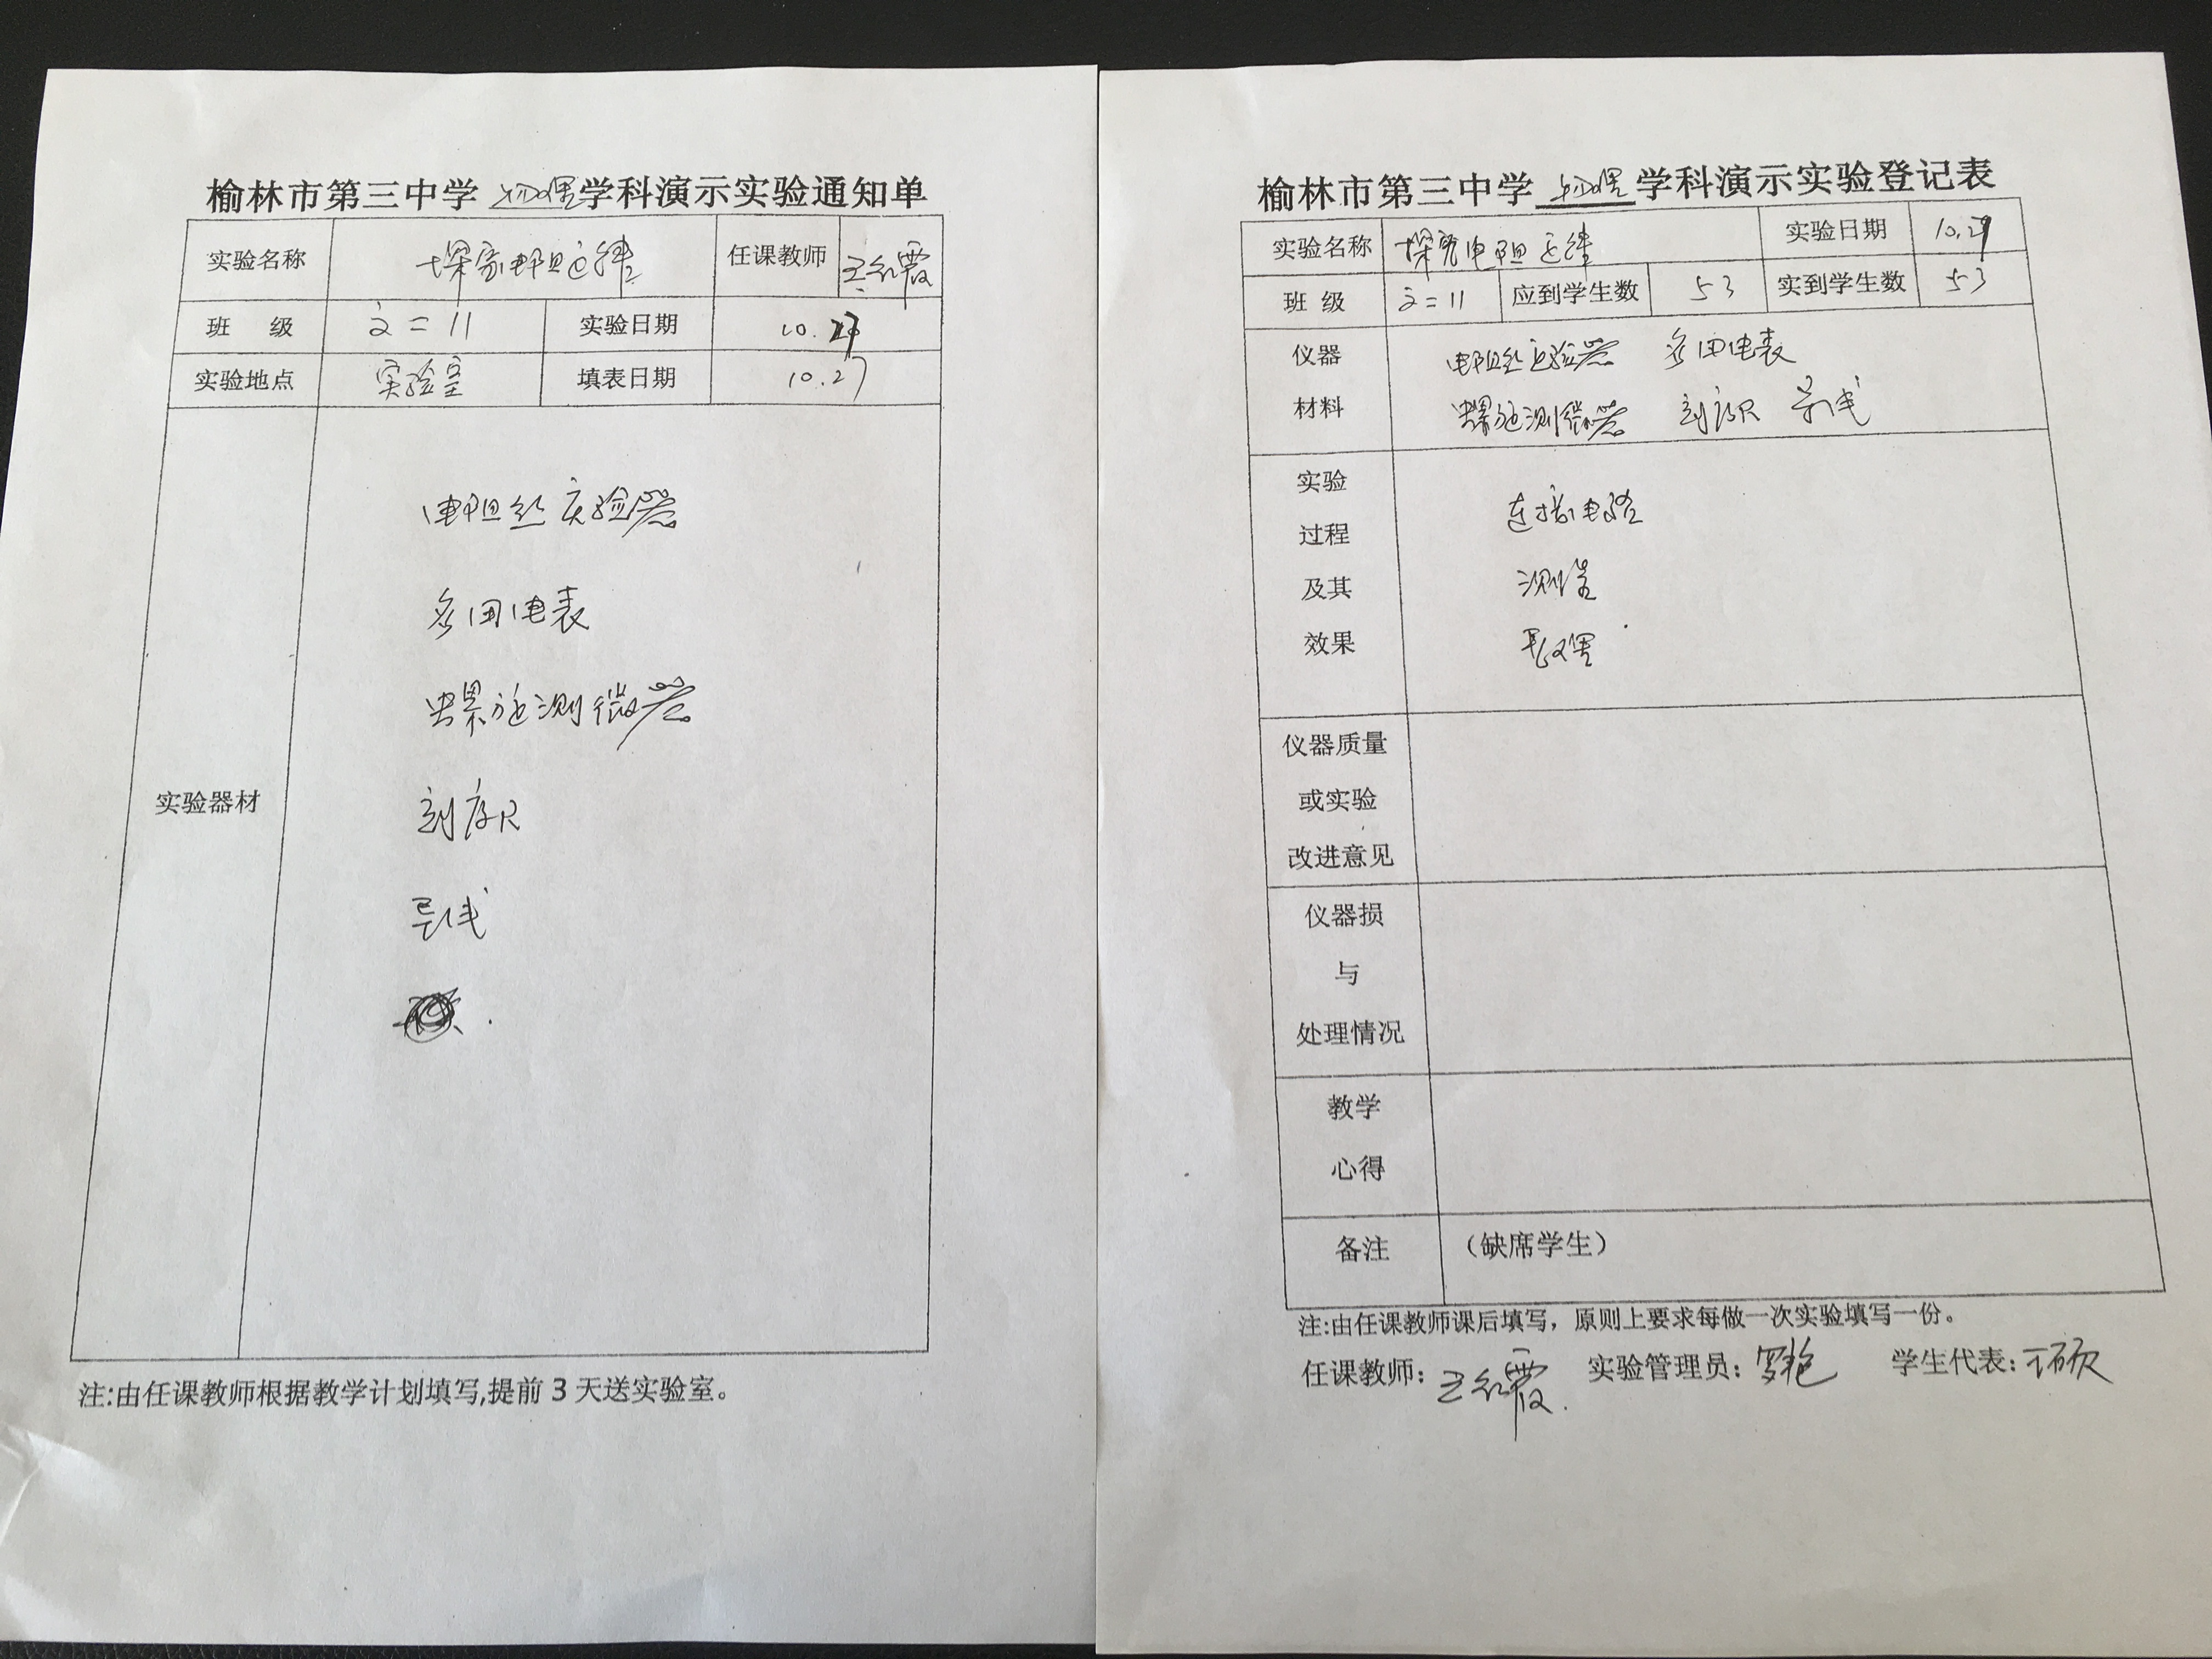 榆林市第三中学 物理 学科演示实验通知单
实验名称 探究电阻定律 任课教师 王红霞
班 级 高二11 实验日期 10.29
实验地点 实验室 填表日期 10.27
实验器材
电阻丝实验器
多用电表
螺旋测微器
刻度尺
导线
注:由任课教师根据教学计划填写,提前3天送实验室。
榆林市第三中学 物理 学科演示实验登记表
实验名称 探究电阻定律 实验日期 10.29
班 级 高二11 应到学生数 53 实到学生数 53
仪器 电阻丝实验器 多用电表
材料 螺旋测微器 刻度尺 导线
实验 连接电路
过程
及其 测量
效果
仪器质量
或实验
改进意见
仪器损
与
处理情况
教学
心得
备注 （缺席学生）
注:由任课教师课后填写，原则上要求每做一次实验填写一份。
任课教师：王红霞 实验管理员：罗艳 学生代表：王硕